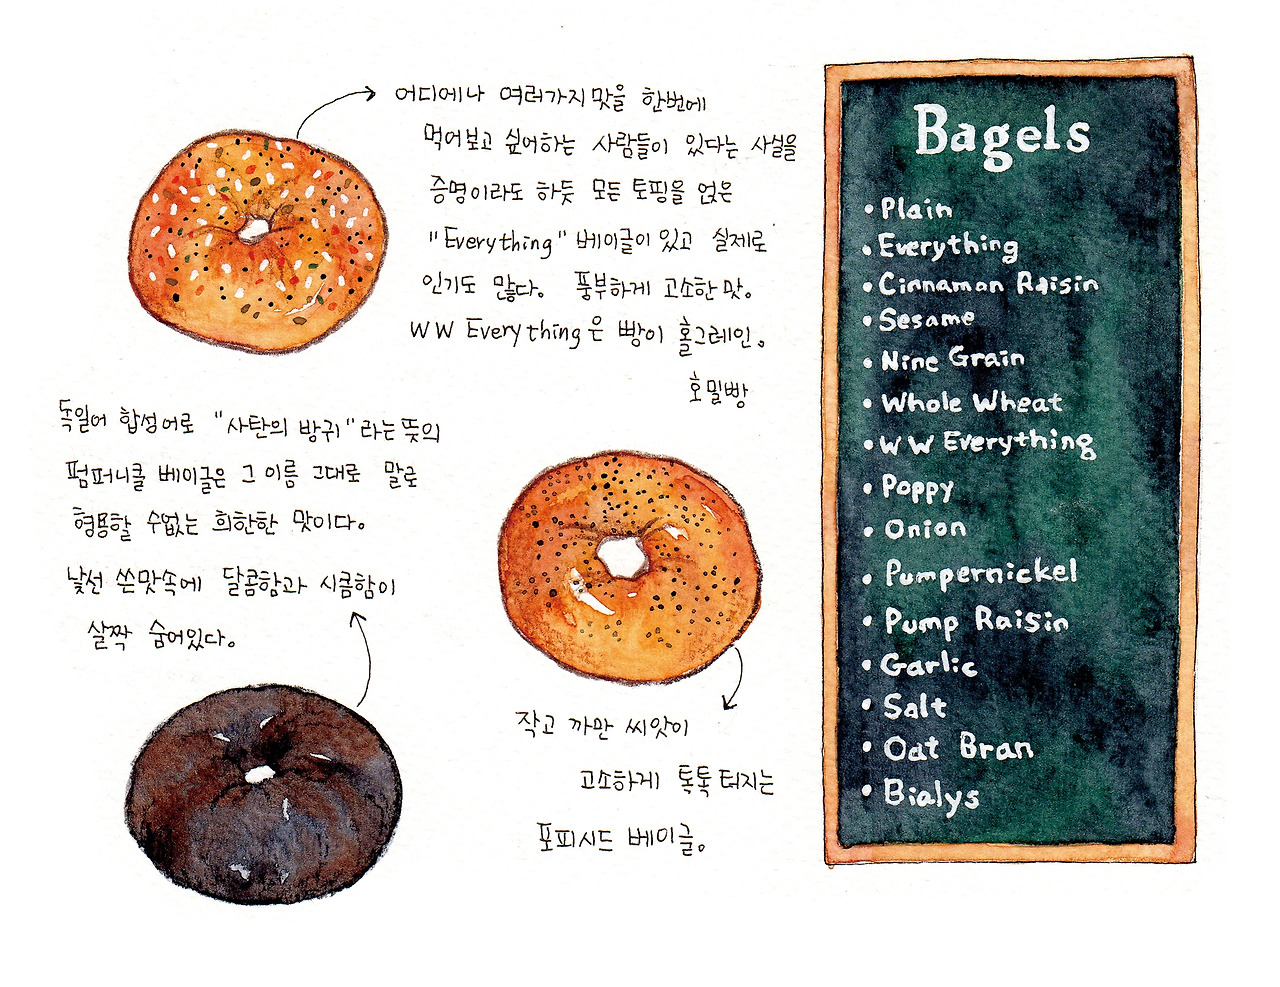 어디에나 여러가지 맛을 한번에
먹어보고 싶어하는 사람들이 있다는 사실을
증명이라도 하듯 모든 토핑을 얹은
"Everything" 베이글이 있고 실제로
인기도 많다. 풍부하게 고소한 맛.
WW Everything은 빵이 홀그레인.
호밀빵
독일어 합성어로 "사탄의 방귀"라는 뜻의
펌퍼니클 베이글은 그 이름 그대로 말로
형용할 수없는 희한한 맛이다.
낯선 쓴맛속에 달콤함과 시큼함이
살짝 숨어있다.
작고 까만 씨앗이
고소하게 톡톡 터지는
포피시드 베이글.
Bagels
• Plain
• Everything
• Cinnaman Raisin
• Sesame
• Nine Grain
• Whole Wheat
• WW Everything
• Poppy
• Onion
• Pumpernickel
• Pump Raisin
• Garlic
• Salt
• Oat Bran
• Bialys